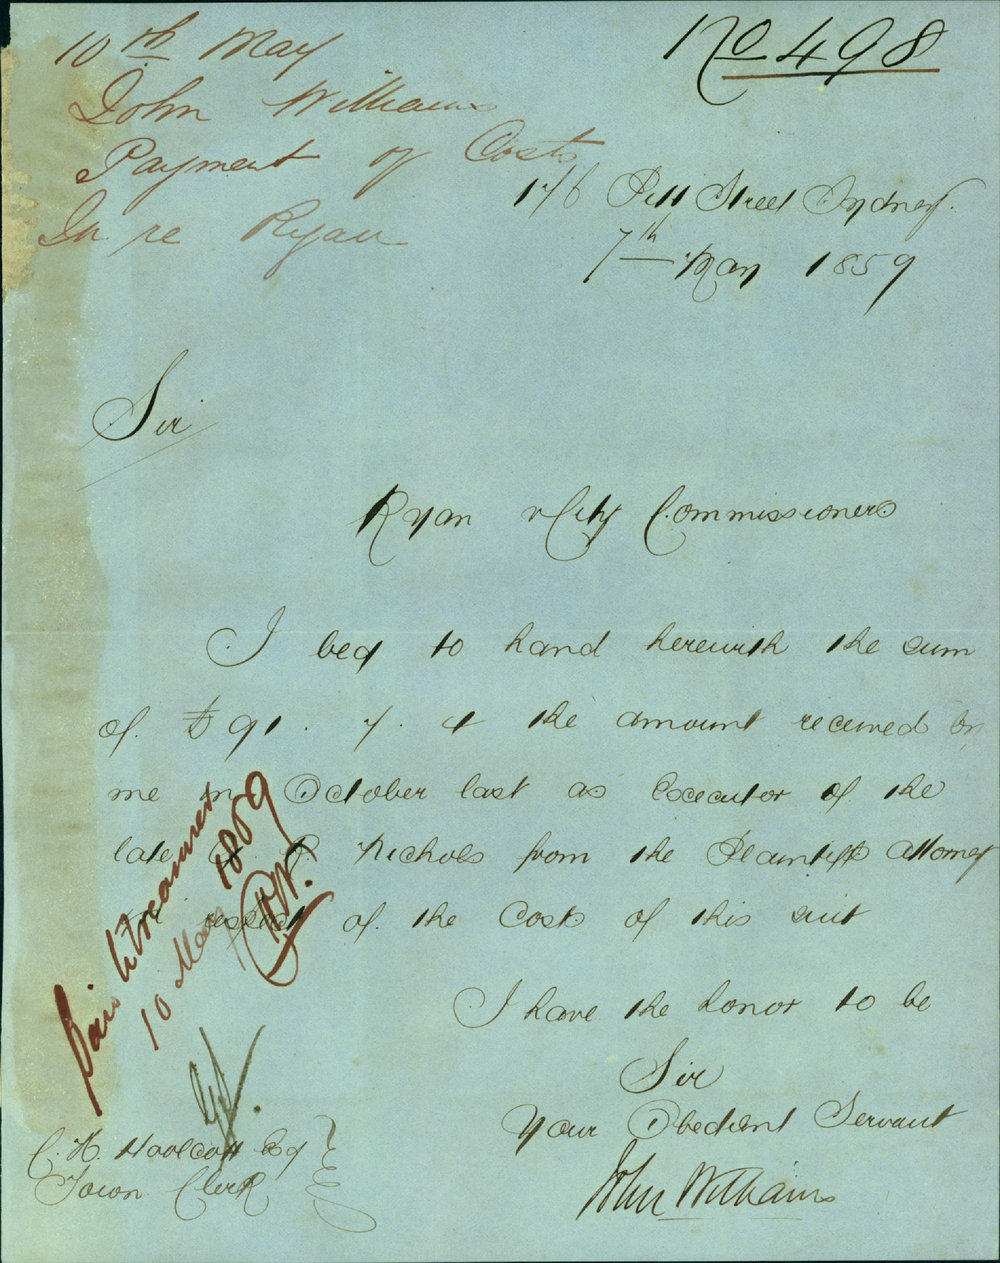 No 498
10th May
John Williams
Payment of Costs
In re Ryan
176 Pitt Street Sydney.
7th May 1859
Sir
Ryan v City Commissioners
I beg to hand herewith the sum
of £91. 7. 4 the amount received by
me in October last as Executor of the
late R Nichols from the Plaintiffs Attorney
in respect of the Costs of this suit
I have the honor to be
Sir
Your Obedient Servant
John Williams
Paid to Treasurer
10 May 1859
C. H. Woolcott Esq
Town Clerk